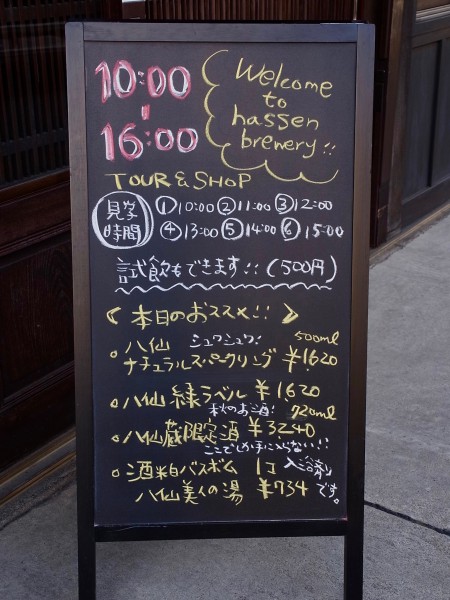 10:00
~
16:00
Welcome
to
hassen
brewery!!
TOUR & SHOP
見学
時間
①10:00 ②11:00 ③12:00
④13:00 ⑤14:00 ⑥15:00
試飲もできます!!(500円)
〈本日のおススメ!!〉
シュワシュワ! 500ml
○八仙
ナチュラルスパークリング ¥1620
○八仙 緑ラベル ¥1620
秋のお酒! 720ml
○八仙蔵限定酒 ¥3240
ここでしか手に入らない!!
○酒粕バスボム 1コ 入浴剤
八仙美人の湯 ¥734 です。